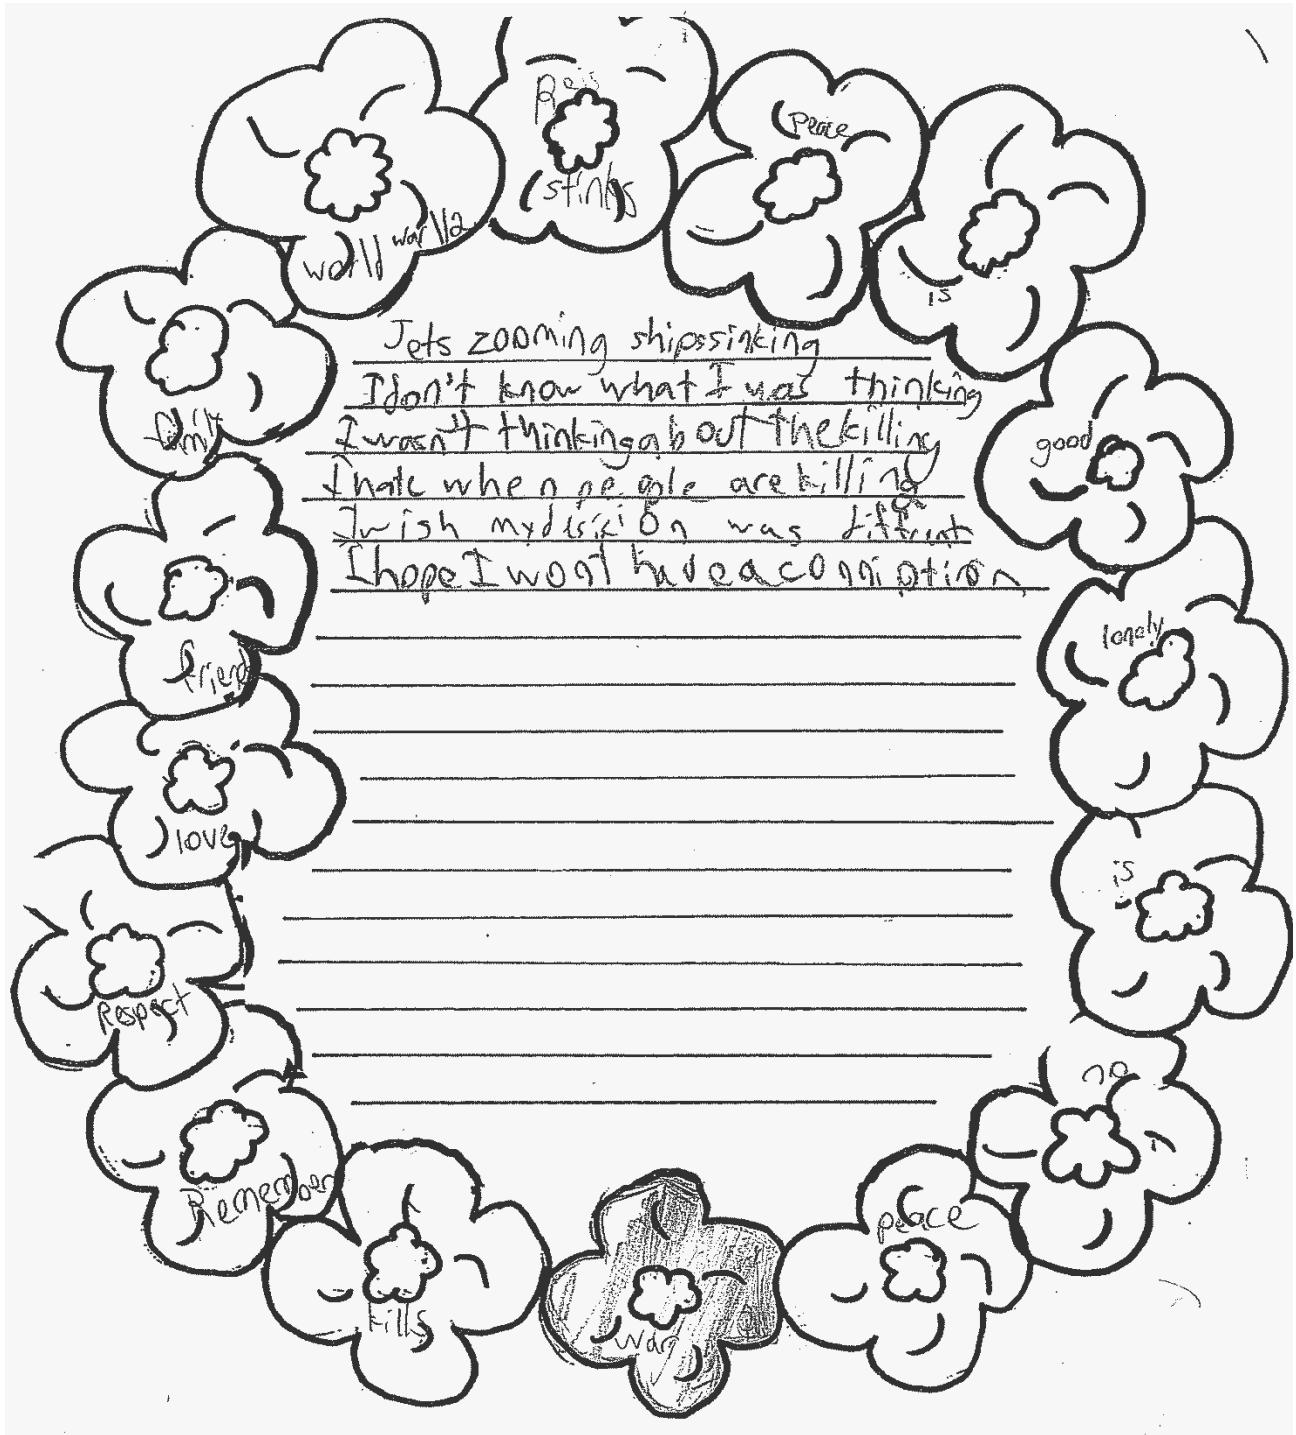 stinks
Peace
is
world war 2
world
good
lonely
is
no
peace
war
kills
Remember
Respect
love
friend
family
Jets zooming shipssinking
I don't know what I was thinking
I wasn't thinking about the killing
I hate when people are killing
I wish my disicion was diffrent
I hope I wont have a conniption